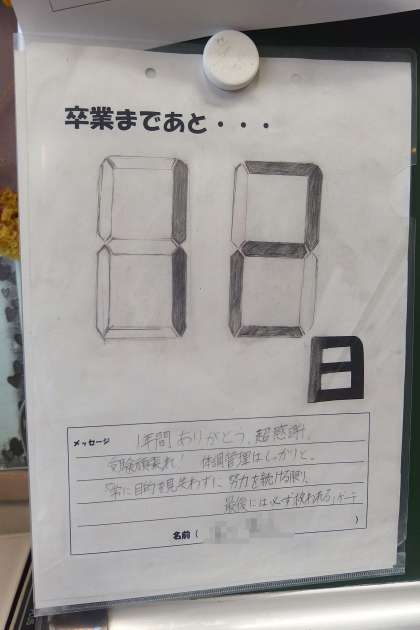 卒業まであと・・・
12
日
メッセージ
1年間ありがとう。超感謝。
受験頑張れ! 体調管理はしっかりと。
「常に目的を見失わずに努力を続ける限り、
最後には必ず救われる」ゲーテ
名前( )